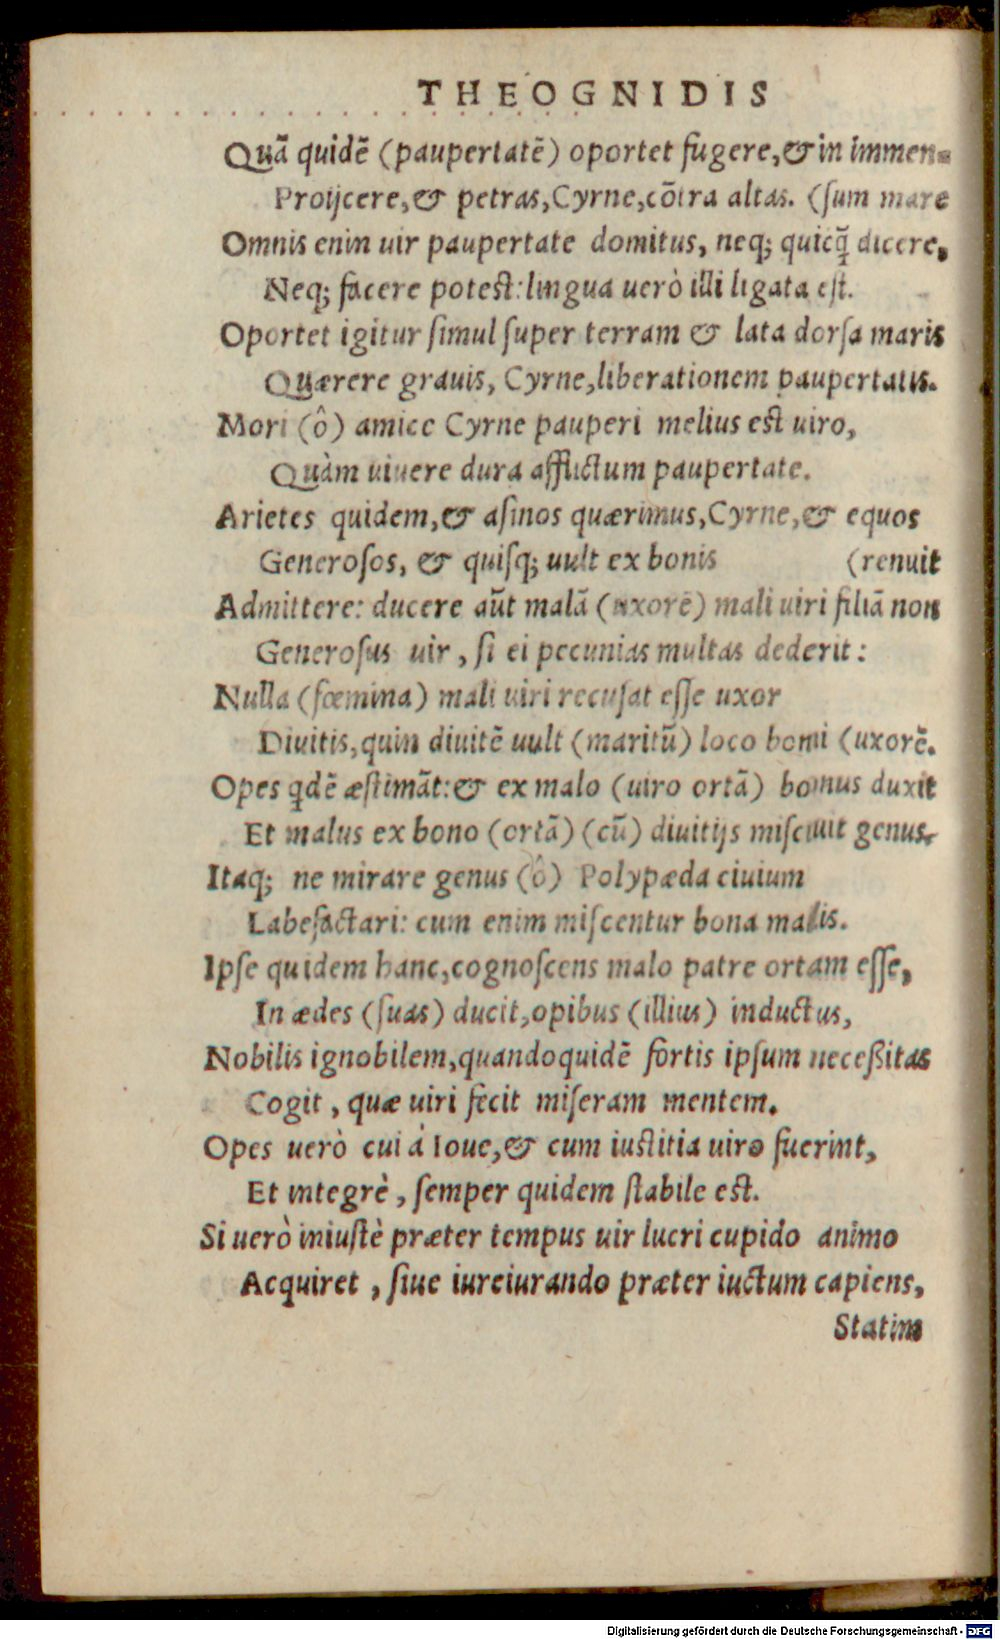 THEOGNIDIS
Quã quidē (paupertatē) oportet fugere, & in immen-
Proijcere, & petras, Cyrne, cōtra altas. (sum mare
Omnis enim uir paupertate domitus, neq; quicq̃ dicere,
Neq; facere potest: lingua uerò illi ligata est.
Oportet igitur simul super terram & lata dorsa maris
Quærere grauis, Cyrne, liberationem paupertatis.
Mori (ô) amice Cyrne pauperi melius est uiro,
Quàm uiuere dura afflictum paupertate.
Arietes quidem, & asinos quærimus, Cyrne, & equos
Generosos, & quisq; uult ex bonis (renuit
Admittere: ducere aũt malã (uxorē) mali uiri filiã non
Generosus uir, si ei pecunias multas dederit:
Nulla (fœmina) mali uiri recusat esse uxor
Diuitis, quin diuitē uult (maritũ) loco boni (uxorē.
Opes qdē æstimãt: & ex malo (uiro ortã) bonus duxit
Et malus ex bono (ortã) (cũ) diuitijs miscuit genus.
Itaq; ne mirare genus (ô) Polypæda ciuium
Labefactari: cum enim miscentur bona malis.
Ipse quidem hanc, cognoscens malo patre ortam esse,
In ædes (suas) ducit, opibus (illius) inductus,
Nobilis ignobilem, quandoquidē fortis ipsum necessitas
Cogit, quæ uiri fecit miseram mentem.
Opes uerò cui à Ioue, & cum iustitia uiro fuerint,
Et integrè, semper quidem stabile est.
Si uerò iniustè præter tempus uir lucri cupido animo
Acquiret, siue iureiurando præter iuctum capiens,
Statim
Digitalisierung gefördert durch die Deutsche Forschungsgemeinschaft - DFG